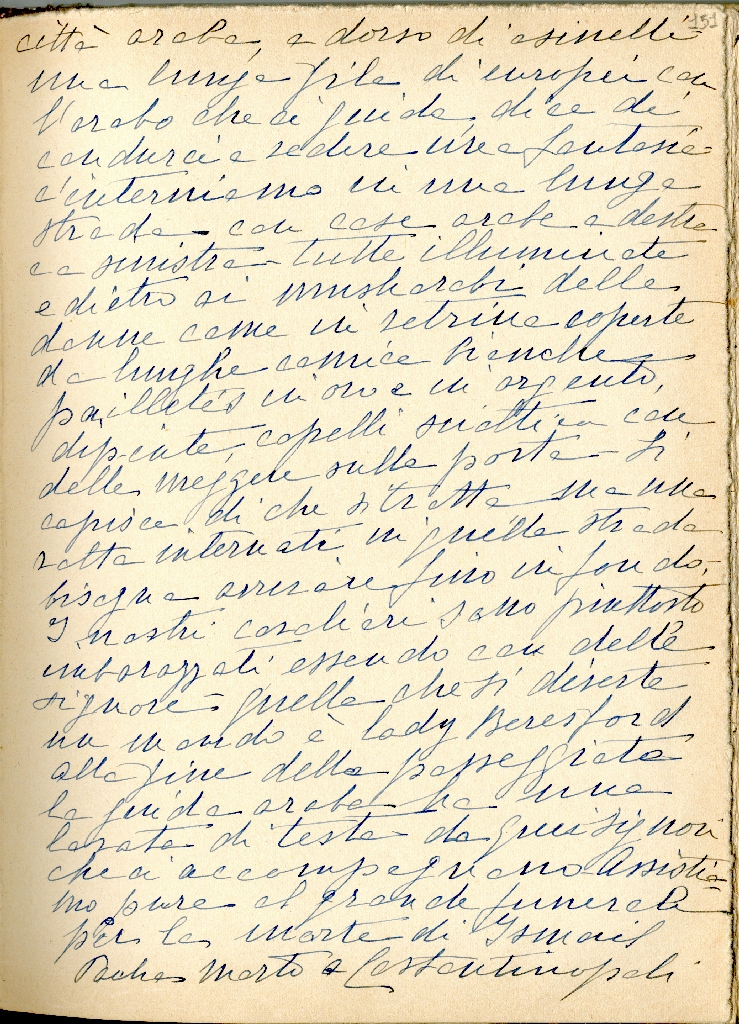 151
città araba, a dorso di asinelli
una lunga fila di europei con
l'arabo che ci guida, dice di
condurci a vedere una fantasia
c'interniamo in una lunga
strada - con case arabe a destra
e a sinistra - tutte illuminate
e dietro ai musharabi delle
donne come in vetrina coperte
da lunghe camice bianche
pailletés in oro e in argento,
dipinte, capelli sciolti con
delle negre sulla porta - Si
capisce di che si tratta ma una
volta internati in quella strada
bisogna arrivare fino in fondo.
I nostri cavalieri sono piuttosto
imbarazzati essendo con delle
signore = quella che si diverte
un mondo è lady Beresford
alla fine della passeggiata
la guida araba ha una
lavata di testa da quei signori
che ci accompagnano Assistia=
mo pure al grande funerale
per la morte di Ismail
Pacha morto a Costantinopoli